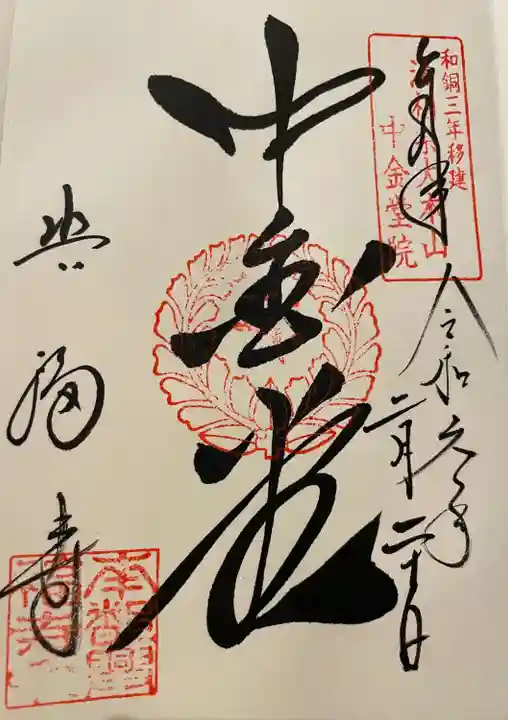 奉拝
和銅三年移建
法相宗大本山
中金堂院
令和六年
二月二十日
中金堂
興福寺
南都興福寺